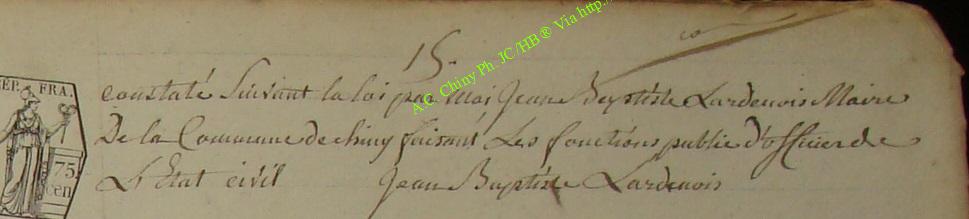 15.
A.C. Chiny Ph. JC/HB® Via http:/
EP. FRA.
constaté Suivant la loi par moi Jean Baptiste Lardenois Maire
De la Commune de chiny faisant Les fonctions public d'officier de
L'Etat civil Jean Baptiste Lardenois
75
cen